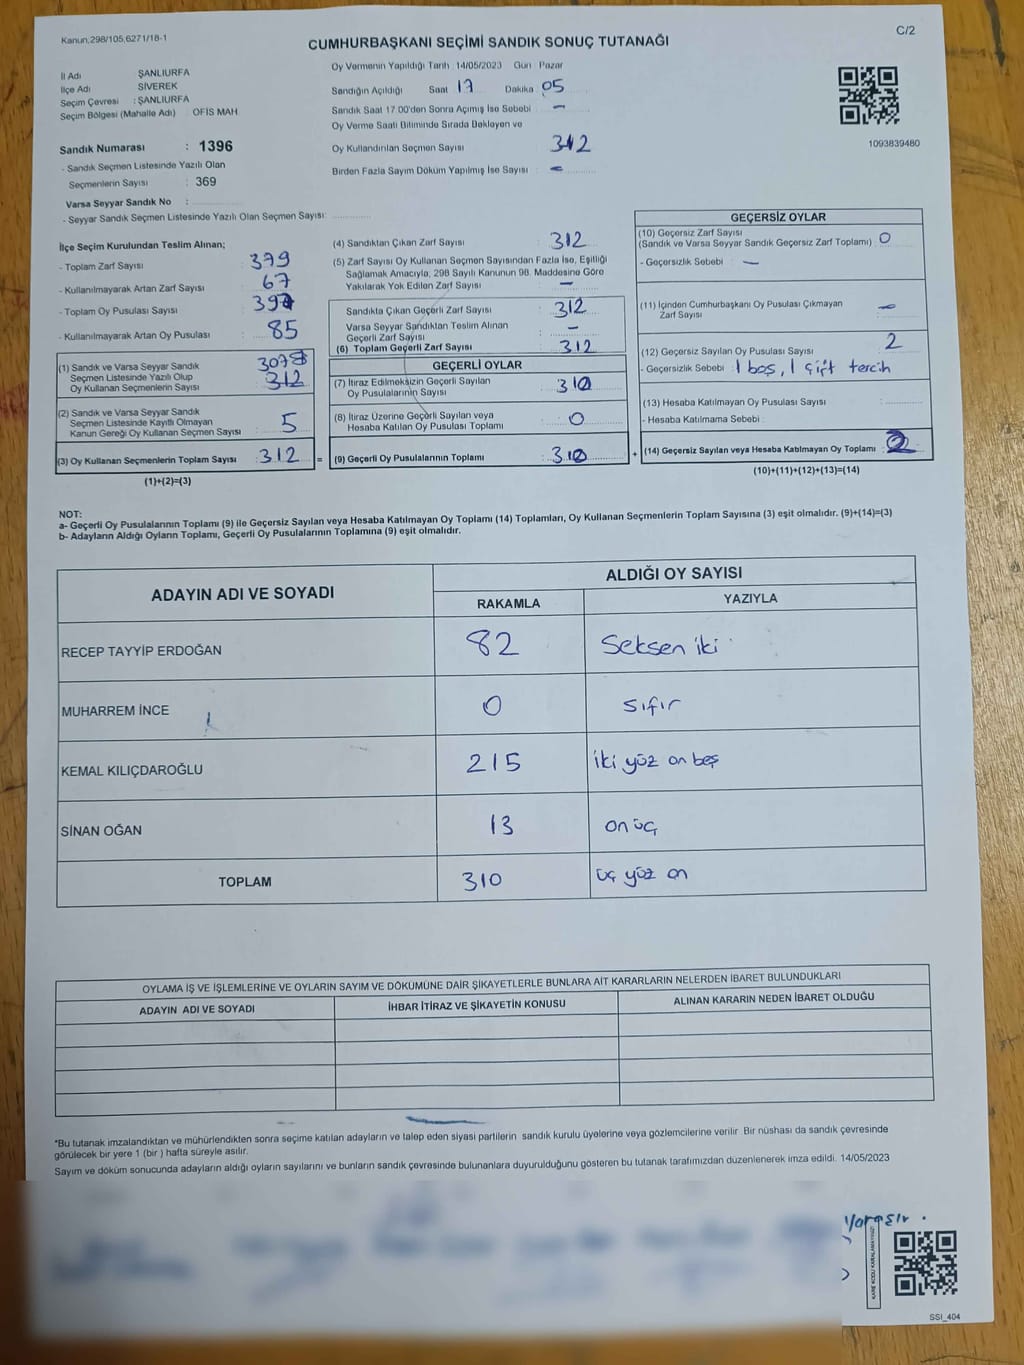 Kanun;298/105,6271/18-1
C/2
CUMHURBAŞKANI SEÇİMİ SANDIK SONUÇ TUTANAĞI
İl Adı ŞANLIURFA
İlçe Adı SİVEREK
Seçim Çevresi : ŞANLIURFA
Seçim Bölgesi (Mahalle Adı) OFİS MAH
Sandık Numarası : 1396
- Sandık Seçmen Listesinde Yazılı Olan
Seçmenlerin Sayısı : 369
Varsa Seyyar Sandık No :
- Seyyar Sandık Seçmen Listesinde Yazılı Olan Seçmen Sayısı:
Oy Vermenin Yapıldığı Tarih 14/05/2023 Gün Pazar
Sandığın Açıldığı Saat 17 Dakika 05
Sandık Saat 17.00'den Sonra Açımış İse Sebebi –
Oy Verme Saati Bitiminde Sırada Bekleyen ve
Oy Kullandırılan Seçmen Sayısı 312
Birden Fazla Sayım Döküm Yapılmış İse Sayısı –
1093839480
İlçe Seçim Kurulundan Teslim Alınan;
- Toplam Zarf Sayısı : 379
- Kullanılmayarak Artan Zarf Sayısı : 67
- Toplam Oy Pusulası Sayısı :
- Kullanılmayarak Artan Oy Pusulası : 85
(1) Sandık ve Varsa Seyyar Sandık
Seçmen Listesinde Yazılı Olup
Oy Kullanan Seçmenlerin Sayısı 312
(2) Sandık ve Varsa Seyyar Sandık
Seçmen Listesinde Kayıtlı Olmayan
Kanun Gereği Oy Kullanan Seçmen Sayısı 5
(3) Oy Kullanan Seçmenlerin Toplam Sayısı : 312 =
(1)+(2)=(3)
(4) Sandıktan Çıkan Zarf Sayısı : 312
(5) Zarf Sayısı Oy Kullanan Seçmen Sayısından Fazla İse, Eşitliği
Sağlamak Amacıyla, 298 Sayılı Kanunun 98. Maddesine Göre
Yakılarak Yok Edilen Zarf Sayısı –
Sandıkta Çıkan Geçerli Zarf Sayısı : 312
Varsa Seyyar Sandıktan Teslim Alınan
Geçerli Zarf Sayısı –
(6) Toplam Geçerli Zarf Sayısı : 312
GEÇERLİ OYLAR
(7) İtiraz Edilmeksizin Geçerli Sayılan
Oy Pusulalarının Sayısı : 310
(8) İtiraz Üzerine Geçerli Sayılan veya
Hesaba Katılan Oy Pusulası Toplamı : 0
(9) Geçerli Oy Pusulalarının Toplamı : 310 +
GEÇERSİZ OYLAR
(10) Geçersiz Zarf Sayısı
(Sandık ve Varsa Seyyar Sandık Geçersiz Zarf Toplamı) 0
- Geçersizlik Sebebi : –
(11) İçinden Cumhurbaşkanı Oy Pusulası Çıkmayan
Zarf Sayısı –
(12) Geçersiz Sayılan Oy Pusulası Sayısı 2
- Geçersizlik Sebebi : 1 boş, 1 çift tercih
(13) Hesaba Katılmayan Oy Pusulası Sayısı :
- Hesaba Katılmama Sebebi :
(14) Geçersiz Sayılan veya Hesaba Katılmayan Oy Toplamı : 2
(10)+(11)+(12)+(13)=(14)
NOT:
a- Geçerli Oy Pusulalarının Toplamı (9) ile Geçersiz Sayılan veya Hesaba Katılmayan Oy Toplamı (14) Toplamları, Oy Kullanan Seçmenlerin Toplam Sayısına (3) eşit olmalıdır. (9)+(14)=(3)
b- Adayların Aldığı Oyların Toplamı, Geçerli Oy Pusulalarının Toplamına (9) eşit olmalıdır.
ADAYIN ADI VE SOYADI ALDIĞI OY SAYISI
RAKAMLA YAZIYLA
RECEP TAYYİP ERDOĞAN 82 Seksen iki
MUHARREM İNCE 0 sıfır
KEMAL KILIÇDAROĞLU 215 iki yüz on beş
SİNAN OĞAN 13 on üç
TOPLAM 310 üç yüz on
OYLAMA İŞ VE İŞLEMLERİNE VE OYLARIN SAYIM VE DÖKÜMÜNE DAİR ŞİKAYETLERLE BUNLARA AİT KARARLARIN NELERDEN İBARET BULUNDUKLARI
ADAYIN ADI VE SOYADI İHBAR İTİRAZ VE ŞİKAYETİN KONUSU ALINAN KARARIN NEDEN İBARET OLDUĞU
*Bu tutanak imzalandıktan ve mühürlendikten sonra seçime katılan adayların ve talep eden siyasi partilerin sandık kurulu üyelerine veya gözlemcilerine verilir. Bir nüshası da sandık çevresinde
görülecek bir yere 1 (bir ) hafta süreyle asılır.
Sayım ve döküm sonucunda adayların aldığı oyların sayılarını ve bunların sandık çevresinde bulunanlara duyurulduğunu gösteren bu tutanak tarafımızdan düzenlenerek imza edildi. 14/05/2023
KARE KODU KARALAMAYINIZ!
SSI_404